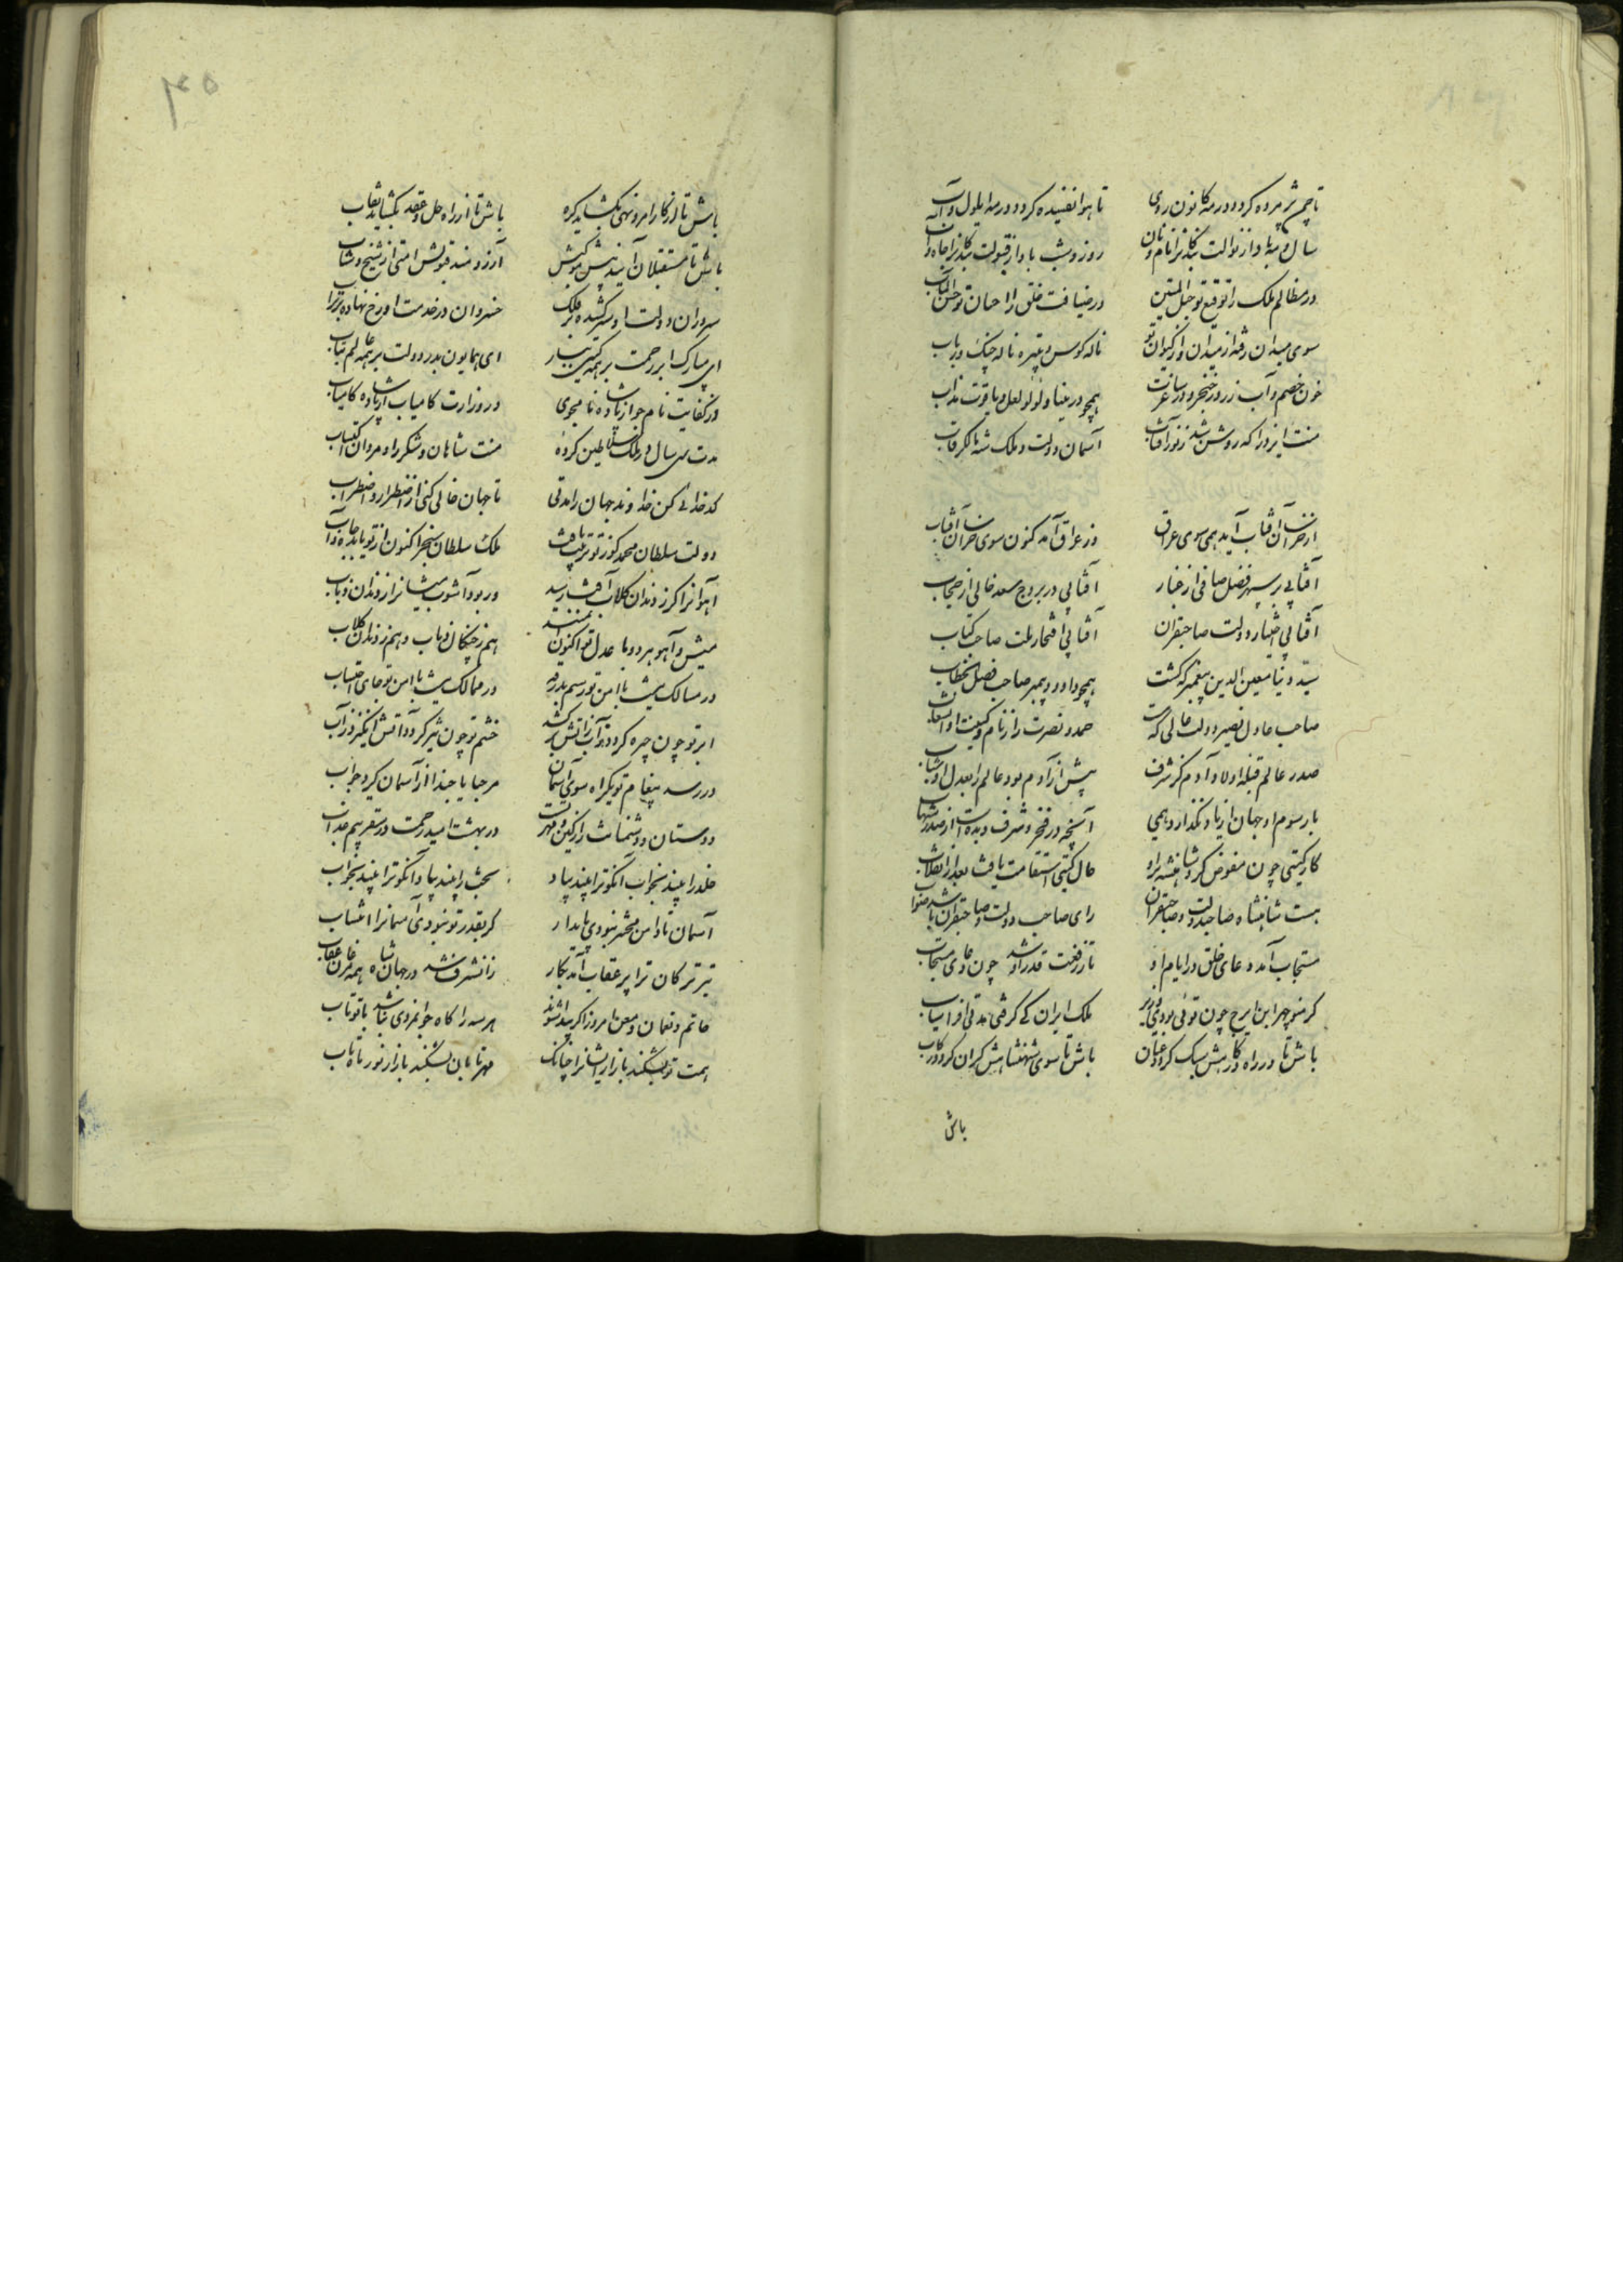 تا چمن پژمرده کردد در مه کانون ز دی
تا هوا تفسیده کردد در مه ایلول و آب
سال و مه بادا ز نوالت بندکانرا نام و نان
روز و شب بادا ز قبولت بندکانرا جاه و آب
در مظالم ملک را توقیع تو حبل المتین
در ضیافت خلق را احسان تو حسن المآب
سوی میدان رفته از میدان و از کیوان تو
ناله کوس و تبیره ناله چنک و رباب
خون خصم و آب زر در خنجر و در ساغرت
همچو در مینا و لؤلؤ لعل و یاقوت مذاب
منت ایزد را که روشن شد ز نور آفتاب
آسمان دولت و ملک شه مالک رقاب
از خراسان آفتاب آید همی سوی عراق
وز عراق آمد کنون سوی خراسان آفتاب
آفتابی بر سپهر فضل صافی از غبار
آفتابی در بروج سعد خالی از حجاب
آفتابی اختیار دولت صاحبقران
آفتابی افتخار ملت صاحب کتاب
سید دنیا معین الدین پیغمبر که کشت
همچو داود پیمبر صاحب فصل الخطاب
صاحب عادل نصیر دولت عالی که هست
حمد و نصرت را ز نام و کنیت او انتساب
صدر عالم قبله اولاد آدم کز شرف
پیش از آدم بود عالم را بعدل او شتاب
با رسوم او جهان از یاد نکذارد همی
آنچه در فخر و شرف دیده است از صدر شهاب
کار کیتی چون مفوض کرد شاهنشه براو
حال کیتی استقامت یافت بعد از انقلاب
هست شاهنشاه صاحب دولت و صاحبقران
رای صاحب دولت و صاحبقران باشد صواب
مستجاب آمد دعای خلق در ایام او
تا ز رفعت قدر او شد چون دعای مستجاب
کر منوچهر ابن ایرج چون توئی بودی وزیر
ملک ایران کی کرفتی مدتی افراسیاب
باش تا در راه کارش سبک کردد عنان
باش تا سوی شهنشاهش کران کردد رکاب
باش
۴۵
باش تا از کار امر و نهی بکشاید کره
باش تا از راه حل و عقد بکشاید نقاب
باش تا مستقبلان آیند پیش موکبش
آرزومند قبولش امتی از شیخ و شاب
سروران در دولت او سر کشیده بر فلک
خسروان در خدمت او رخ نهاده بر تراب
ای مبارک ابر رحمت بر همه کیتی ببار
ای همایون بدر دولت بر همه عالم بتاب
در کفایت نام جو از پادشاه نامجوی
در وزارت کامیاب از پادشاه کامیاب
مدت سی سال در ملک سلاطین کرده
منت شاهان و شکر راد مردان اکتساب
کدخدائی کن خداوند جهان را مدتی
تا جهان خالی کنی از اضطرار و اضطراب
دولت سلطان محمد کز تو ترتیب یافت
ملک سلطان سنجر اکنون از تو یابد جاه و آب
آهوانرا کر ز دندان کلاب آفت رسید
ور بود آشوب میشانرا ز دندان ذئاب
میش و آهو هر دو با عدل تو اکنون ایمنند
هم ز چنکال ذئاب و هم ز دندان کلاب
در مسالک نیست با امن تو رسم بدرقه
در ممالک نیست با امن تو جای احتساب
ابر تو چون چیره کردد آب از آتش بر کشد
خشم تو چون تیز کردد آتش انکیزد ز آب
در رسد پیغام تو یکراه سوی آسمان
مرحبا یا حبذا از آسمان کیرد جواب
دوستان و دشمنانت را ز کین و مهر تست
در بهشت امید رحمت در سقر بیم عذاب
خلد را بیند بخواب آنکو ترا بیند ببیداد
بخت را بیند ببیداد آنکو ترا بیند بخواب
آسمان تا دامن محشر نبودی پایدار
کر بقدر تو نبودی آسمانرا انتساب
تیر ترکان ترا پر عقاب آمد بکار
زان شرف شد در جهان شاه همه مرغان عقاب
حاتم و نعمان و معن امروز اکر پیدا شوند
هر سه را کاه جوانمردی نباشد با تو تاب
همت تو بشکند بازار ایشانرا چنانک
مهر تابان بشکند بازار نور ماهتاب